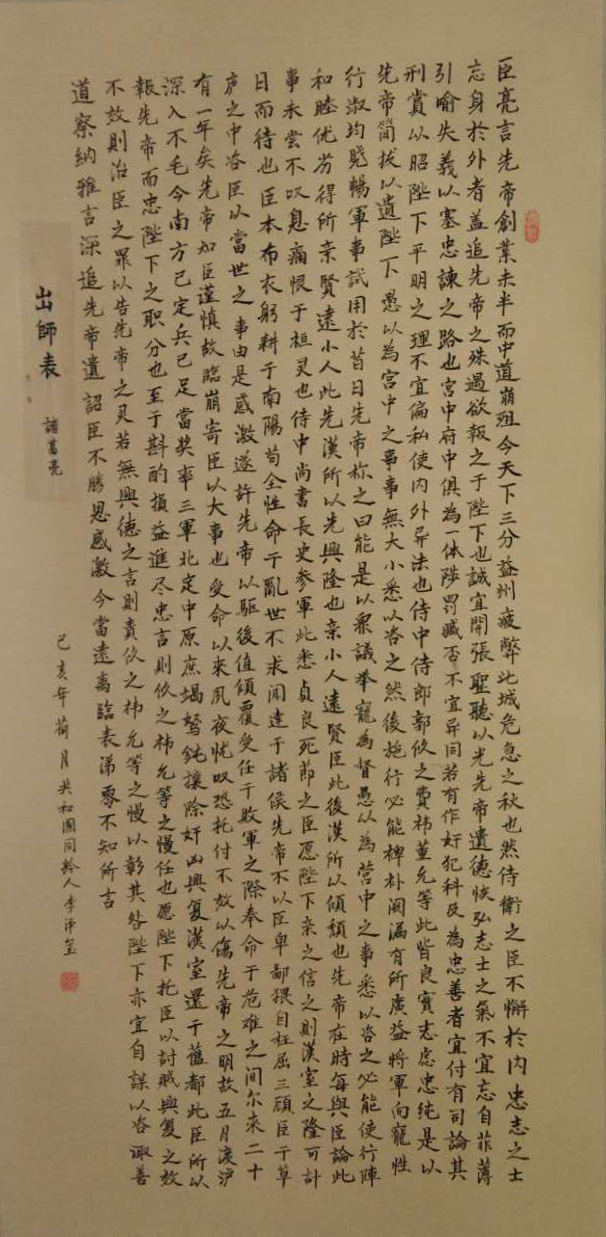 臣亮言先帝創業未半而中道崩殂今天下三分益州疲弊此城危急之秋也然侍衛之臣不懈於内忠志之士
忘身於外者盖追先帝之殊遇欲報之于陛下也誠宜開張聖聽以光先帝遺德恢弘志士之氣不宜忘自菲薄
引喻失義以塞忠諫之路也宮中府中俱為一体陟罰臧否不宜异同若有作奸犯科及為忠善者宜付有司論其
刑賞以昭陛下平明之理不宜偏私使内外异法也侍中侍郎郭攸之費祎董允等此皆良實志慮忠純是以
先帝簡拔以遺陛下愚以為宮中之事事無大小悉以咨之然後施行必能裨朴阙漏有所廣益將軍向寵性
行淑均曉暢軍事試用於昔日先帝称之曰能是以衆議举寵為督愚以為营中之事悉以咨之必能使行陣
和睦优劣得所亲賢遠小人此先漢所以先興隆也亲小人遠賢臣此後漢所以傾頹也先帝在時每與臣論此
事未尝不叹息痛恨于桓灵也侍中尚書長史参軍此悉貞良死節之臣愿陛下亲之信之則漢室之隆可計
日而待也臣本布衣躬耕于南陽苟全性命于亂世不求闻達于諸侯先帝不以臣卑鄙猥自枉屈三顾臣于草
庐之中咨臣以當世之事由是感激遂許先帝以驱後值傾覆受任于敗軍之際奉命于危难之间尔来二十
有一年矣先帝知臣謹慎故臨崩寄臣以大事也受命以来夙夜忧叹恐托付不效以傷先帝之明故五月渡泸
深入不毛今南方已定兵已足當奖率三軍北定中原庶竭驽鈍攘除奸凶興复漢室還于舊都此臣所以
報先帝而忠陛下之职分也至于斟酌損益進尽忠言則攸之祎允等之慢任也愿陛下托臣以討贼興复之效
不效則治臣之罪以告先帝之灵若無興德之言則責攸之祎允等之慢以彰其咎陛下亦宜自謀以咨诹善
道察納雅言深追先帝遺詔臣不勝恩感激今當遠离臨表涕零不知所言
己亥年荷月共和國同龄人李
出師表
諸葛亮